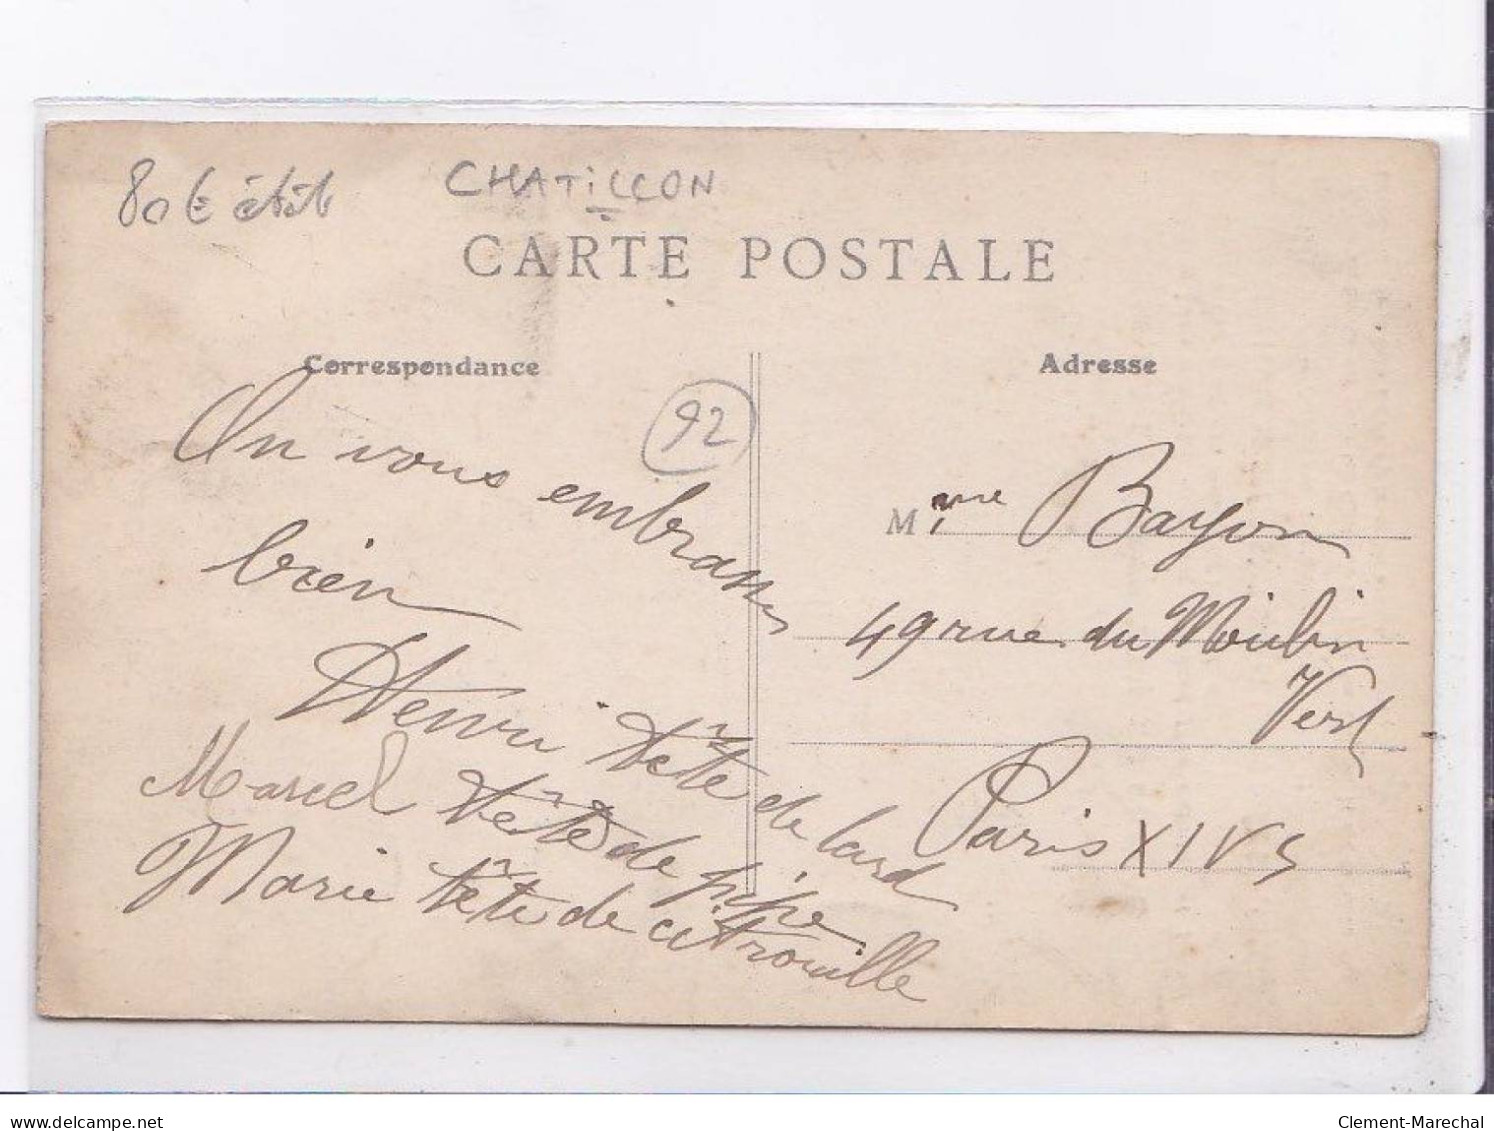 80€ état
CHATILLON
CARTE POSTALE
Correspondance
Adresse
92
On vous embrasse
bien
Henri tête de lard
Marcel tête de pipe
Marie tête de citrouille
Mme Bayon
49 rue du Moulin
Vert
Paris XIVe
delcampe.net
Clement-Marechal